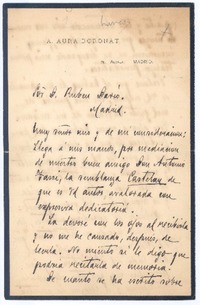 A. AURA BORONAT
MADRID
Sr. D. Rubén Darío.
Madrid.
Muy señor mío y de mi consideración:
Llega á mis manos, por mediación
de nuestro buen amigo Don Antonio
la semblanza Castelar de
que es Vd autor avalorada con
expresiva dedicatoria.
La devoré con los ojos al recibirla
y no me he cansado, después, de
leerla. No miento si le digo que
podría recitarla de memoria.
De cuanto se ha escrito sobre